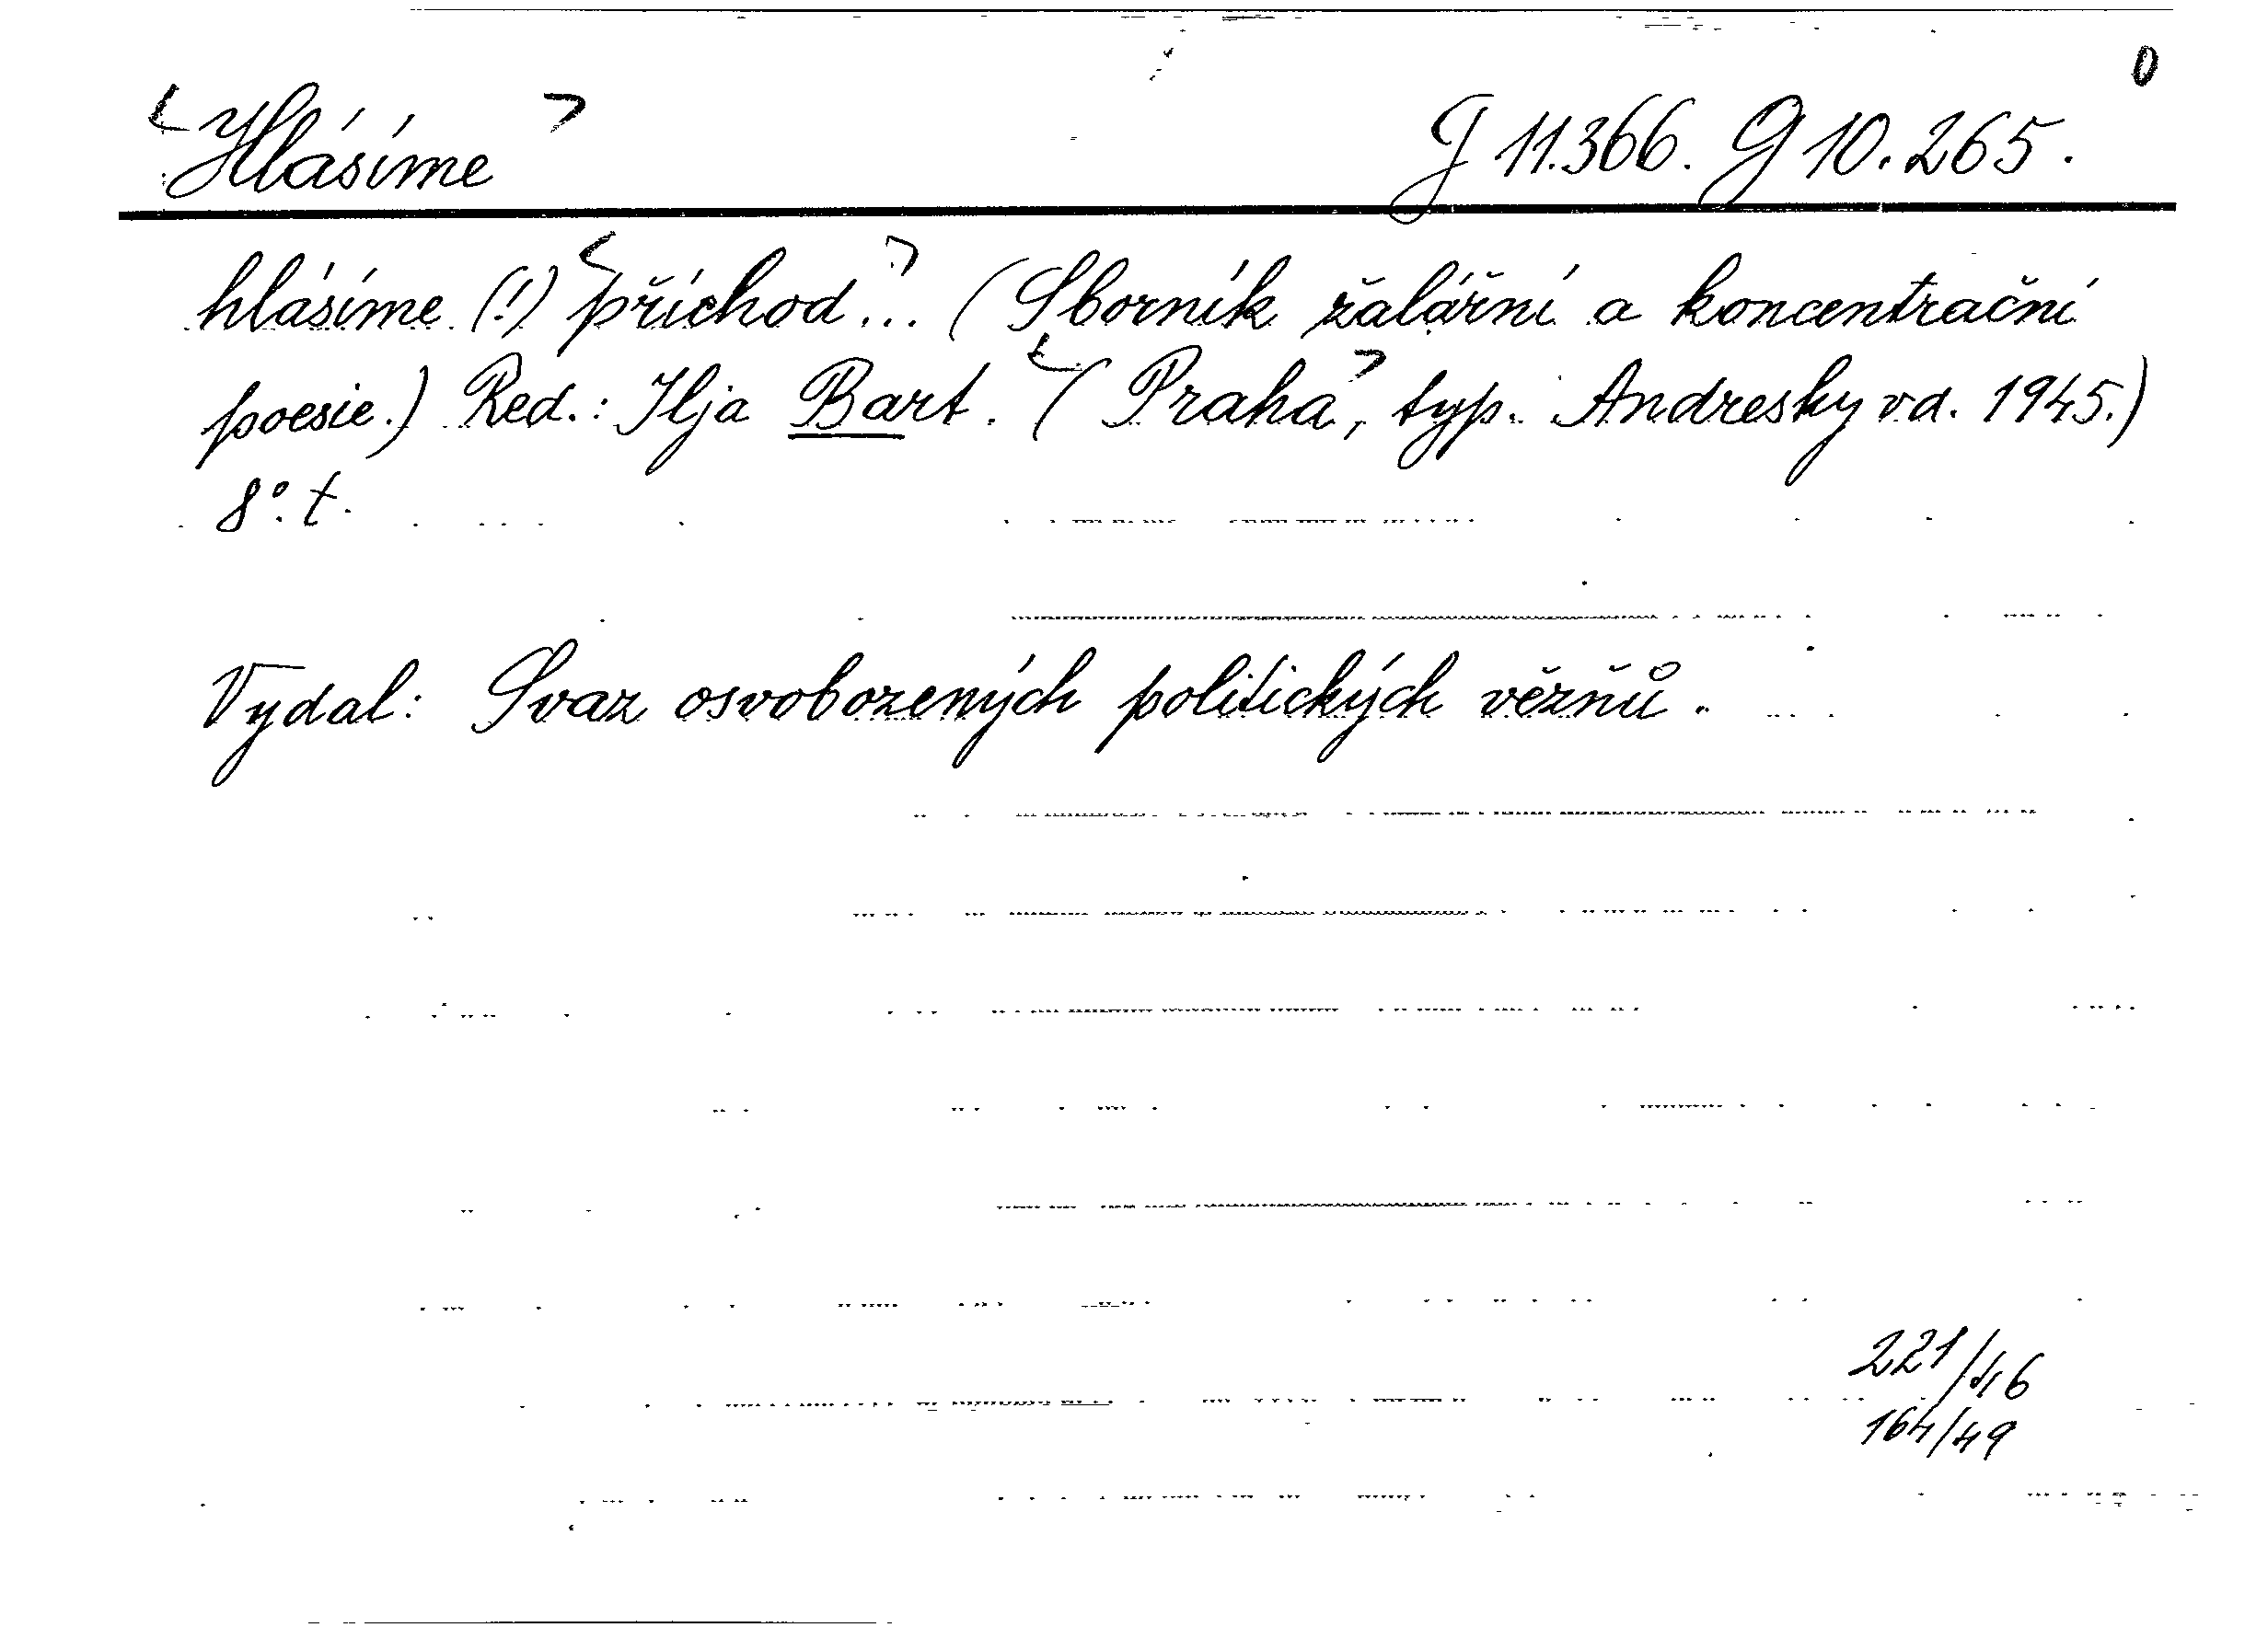 0
<Hlásíme> J 11.366. G 10.265.
hlásíme (!) <příchod...> (Sborník žalářní a koncentrační
poesie.) Red.: Ilja Bart. <(Praha>, typ. Andresky vd. 1945.)
8°. t.
Vydal: Svaz osvobozených politických vězňů.
221/46
164/49